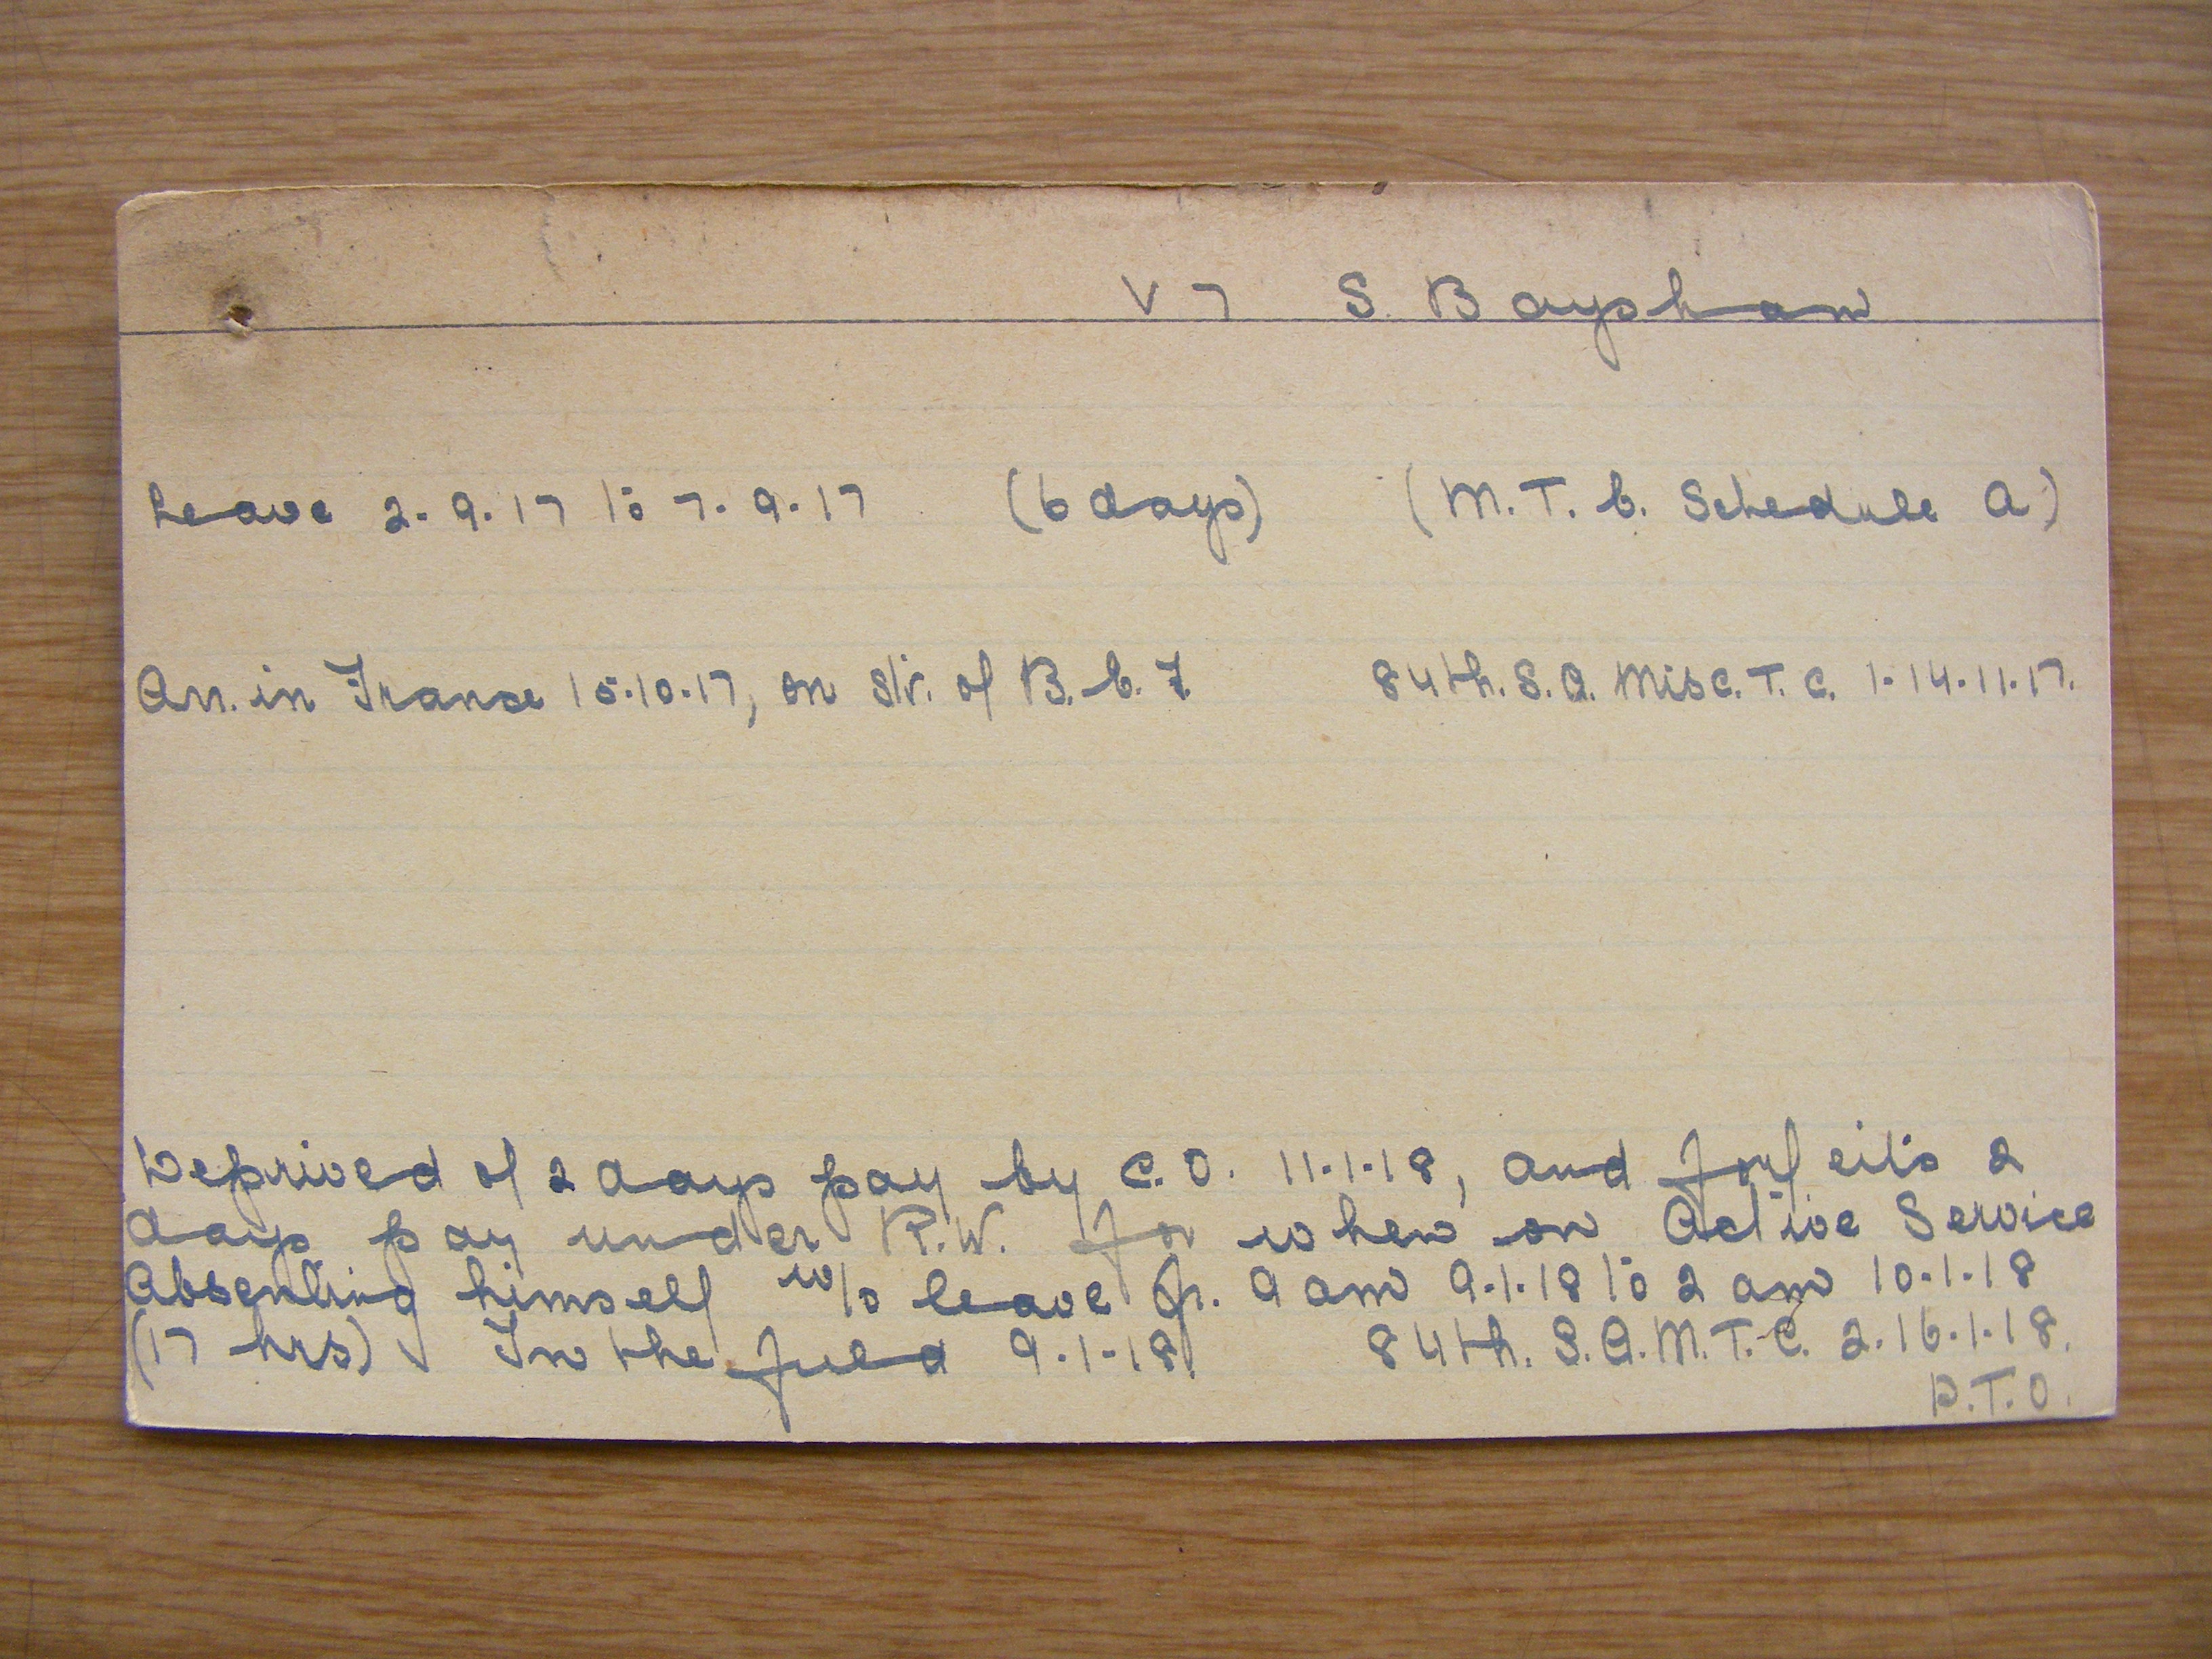 V7 S. Bayshaw
Leave 2.9.17 to 7.9.17 (6 days) (M.T.C. Schedule A)
Arr. in France 15.10.17, on Str. of B.C.F. 84th. S.A. Misc. T.C. 1.14.11.17.
Deprived of 2 days pay by C.O. 11.1.18, and forfeits 2
days pay under R.W. for when on Active Service
Absenting himself w/o leave fr. 9 am 9.1.18 to 2 am 10.1.18
(17 hrs) In the field 9.1.18. 84th. S.A.M.T.C. 2.16.1.18.
P.T.O.